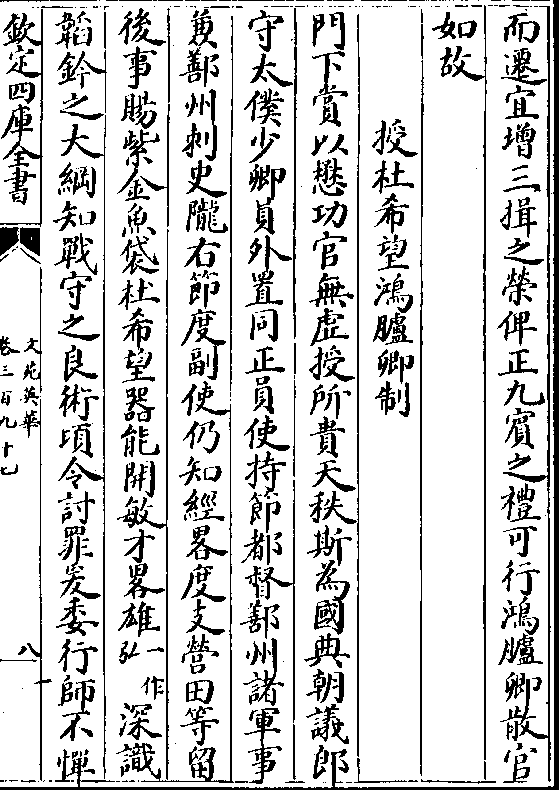 而遷宜增三揖之榮俾正九賓之禮可行鴻臚卿散官
如故
授杜希望鴻臚卿制
門下賞以懋功官無虛授所貴天秩斯為國典朝議郎
守太僕少卿員外置同正員使持節都督鄯州諸軍事
兼鄯州刺史隴右節度副使仍知經畧度支營田等留
後事賜紫金魚袋杜希望器能開敏才畧雄一作弘深識
韜鈐之大綱知戰守之良術頃令討罪爰委行師不憚
欽定四庫全書
文苑英華
卷三百九十七
八